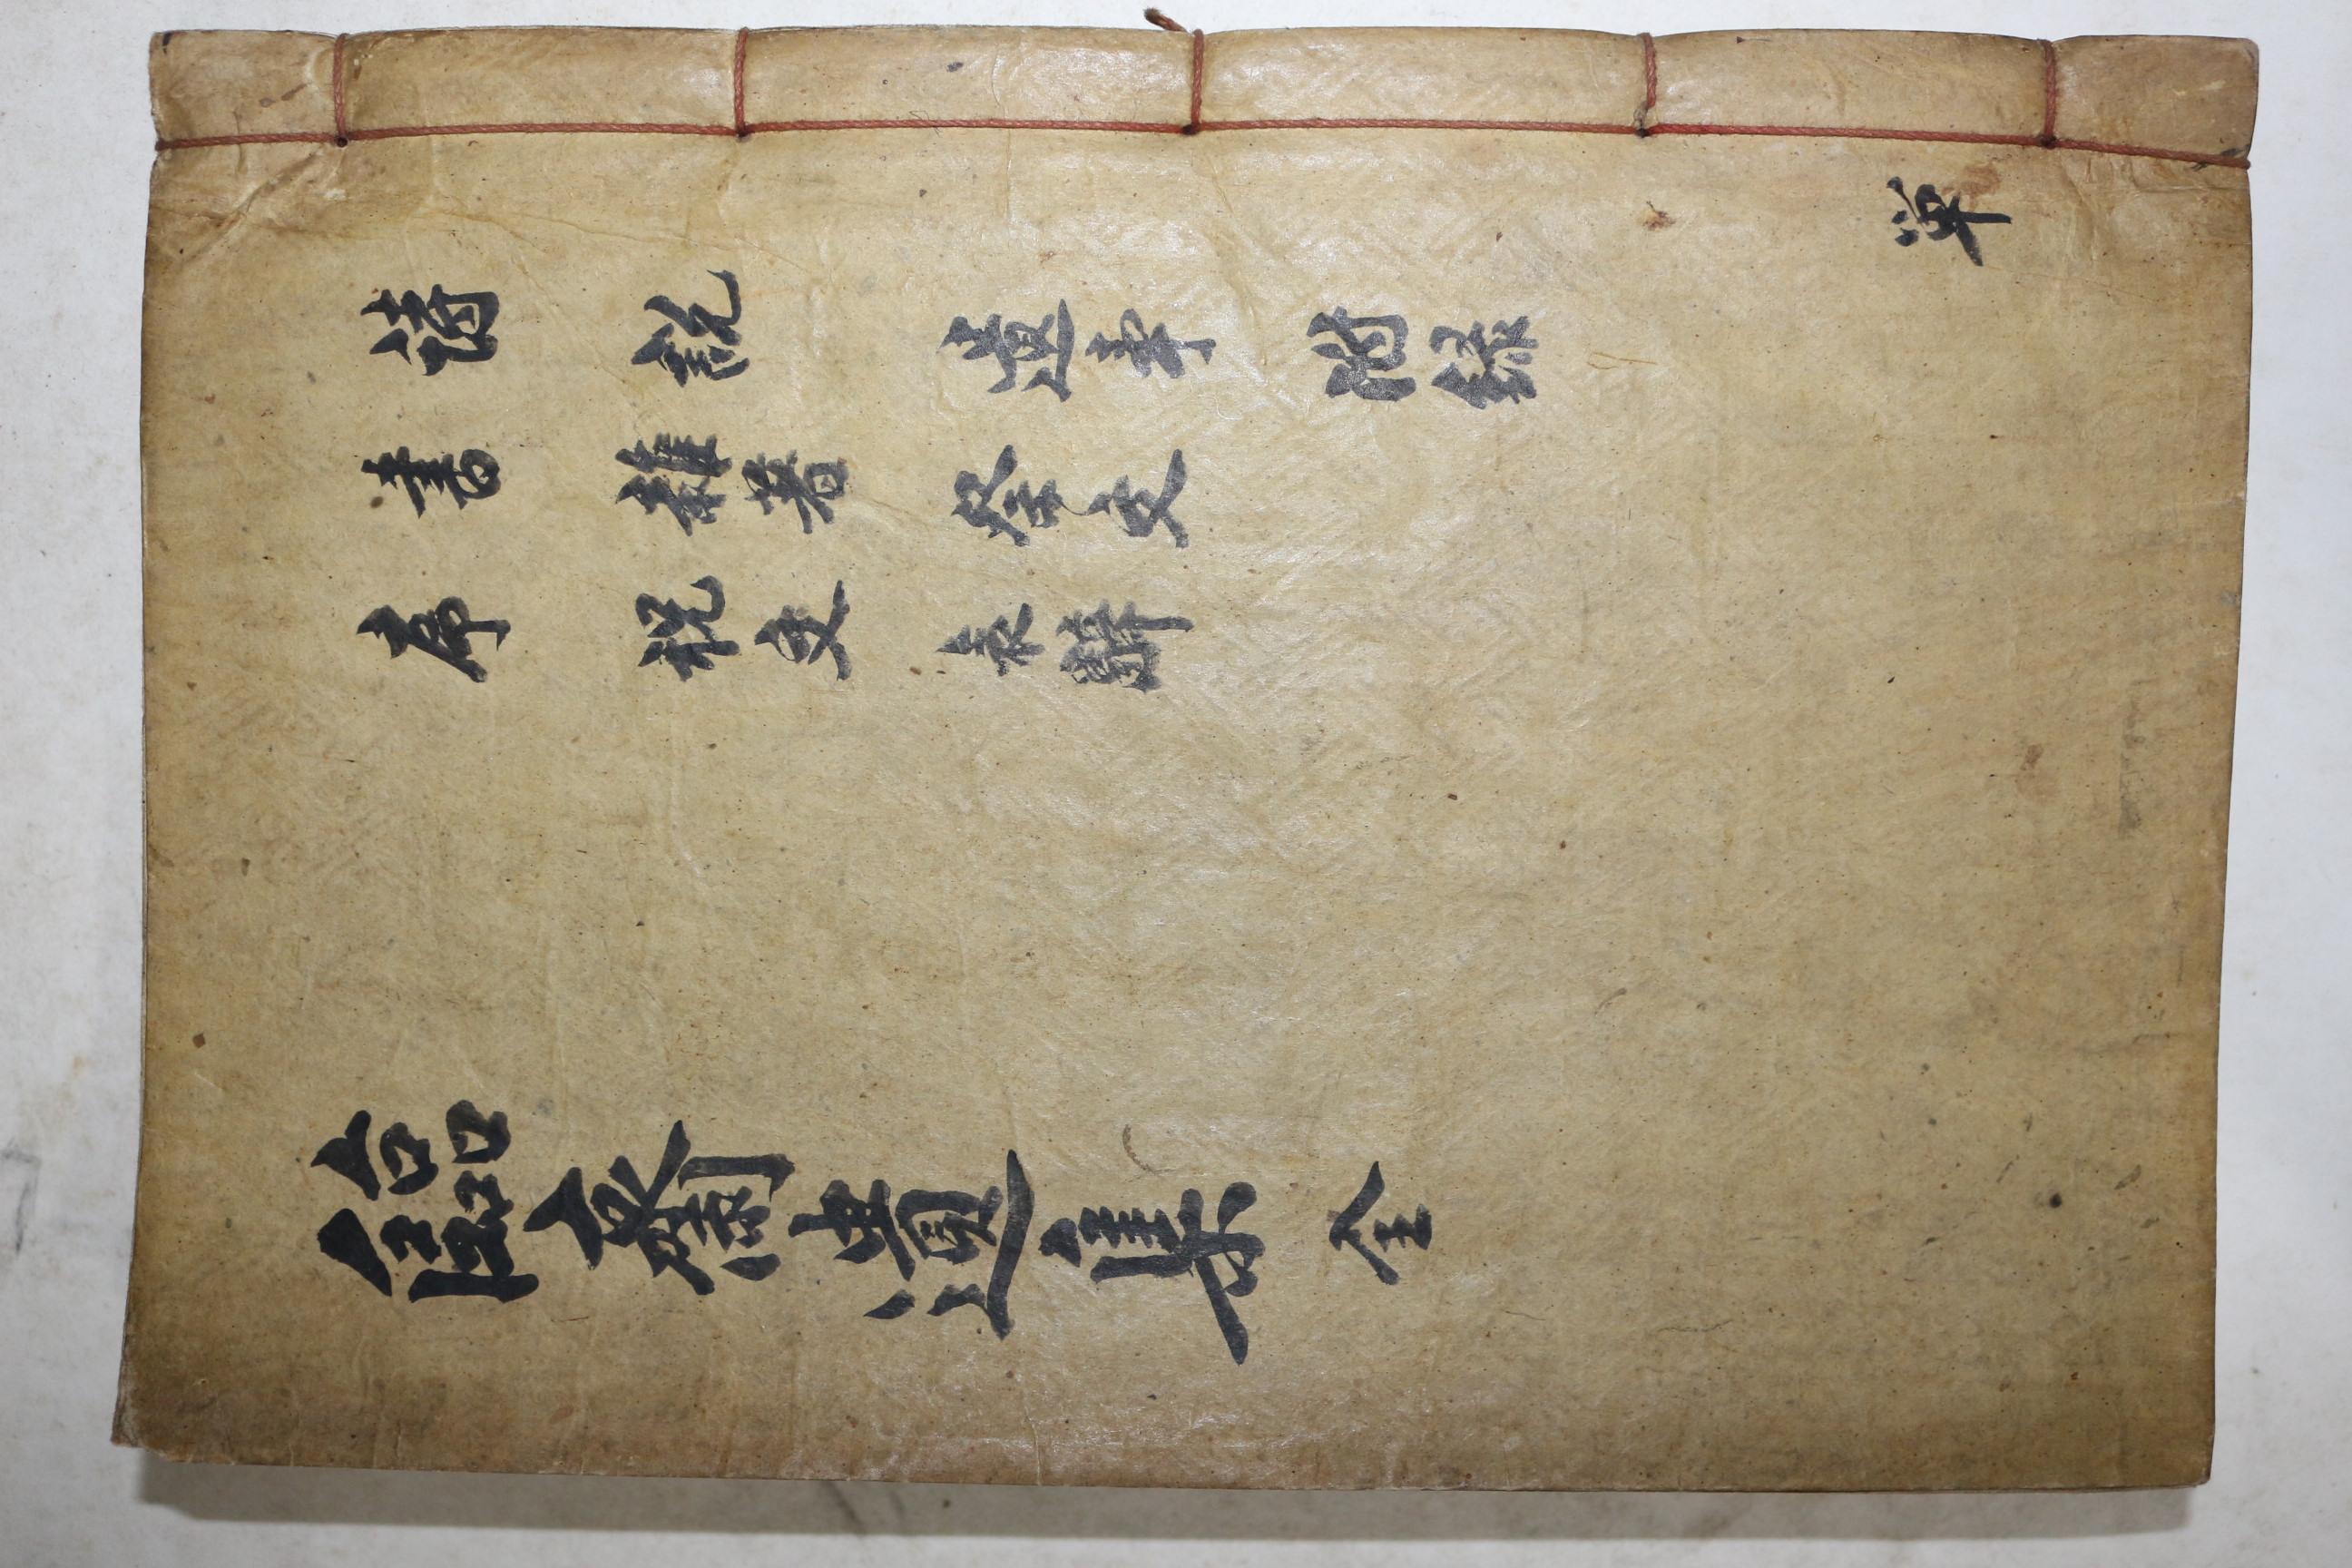 單
詩 說 遺事 附錄
書 雜著 祭文
序 祝文 哀辭
臨齋遺集 全